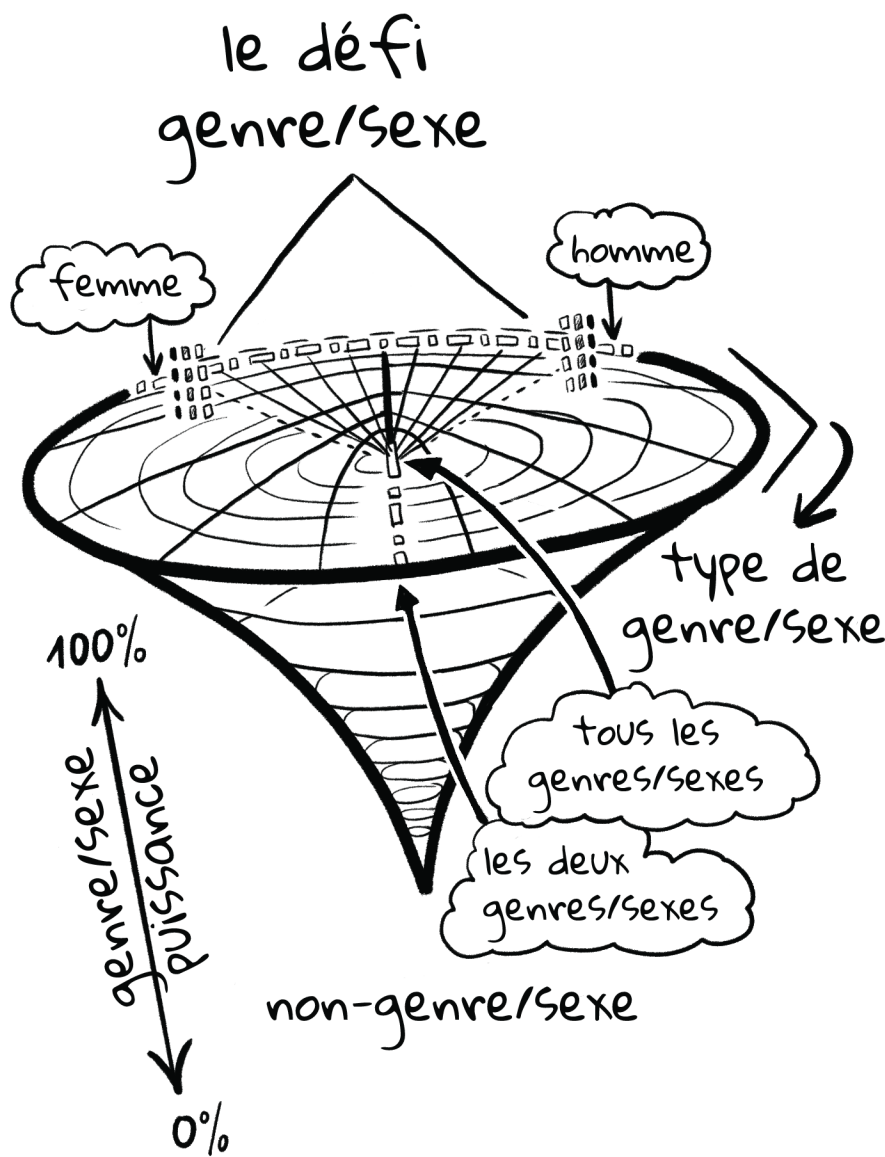 le défi
genre/sexe
femme
homme
type de
genre/sexe
100%
genre/sexe
puissance
0%
tous les
genres/sexes
les deux
genres/sexes
non-genre/sexe